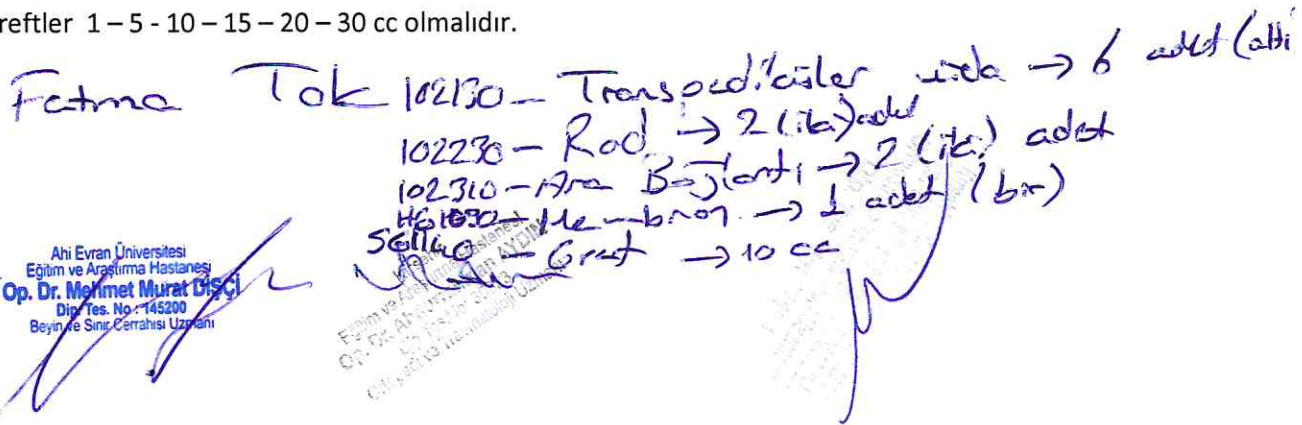 reftler 1 – 5 - 10 – 15 – 20 – 30 cc olmalıdır.
Fatma Tok 102130 - Transpediküler vida → 6 adet (altı
102230 - Rod → 2 (iki) adet
102310 - Ara Bağlantı → 2 (iki) adet
- Membran → 1 adet (bir)
- Greft → 10 cc
Ahi Evran Üniversitesi
Eğitim ve Araştırma Hastanesi
Op. Dr. Mehmet Murat DİŞÇİ
Dip. Tes. No : 145200
Beyin ve Sinir Cerrahisi Uzmanı
Eğitim ve Araştırma Hastanesi
Op. Dr. AYDIN
Ortopedi ve Travmatoloji Uzm